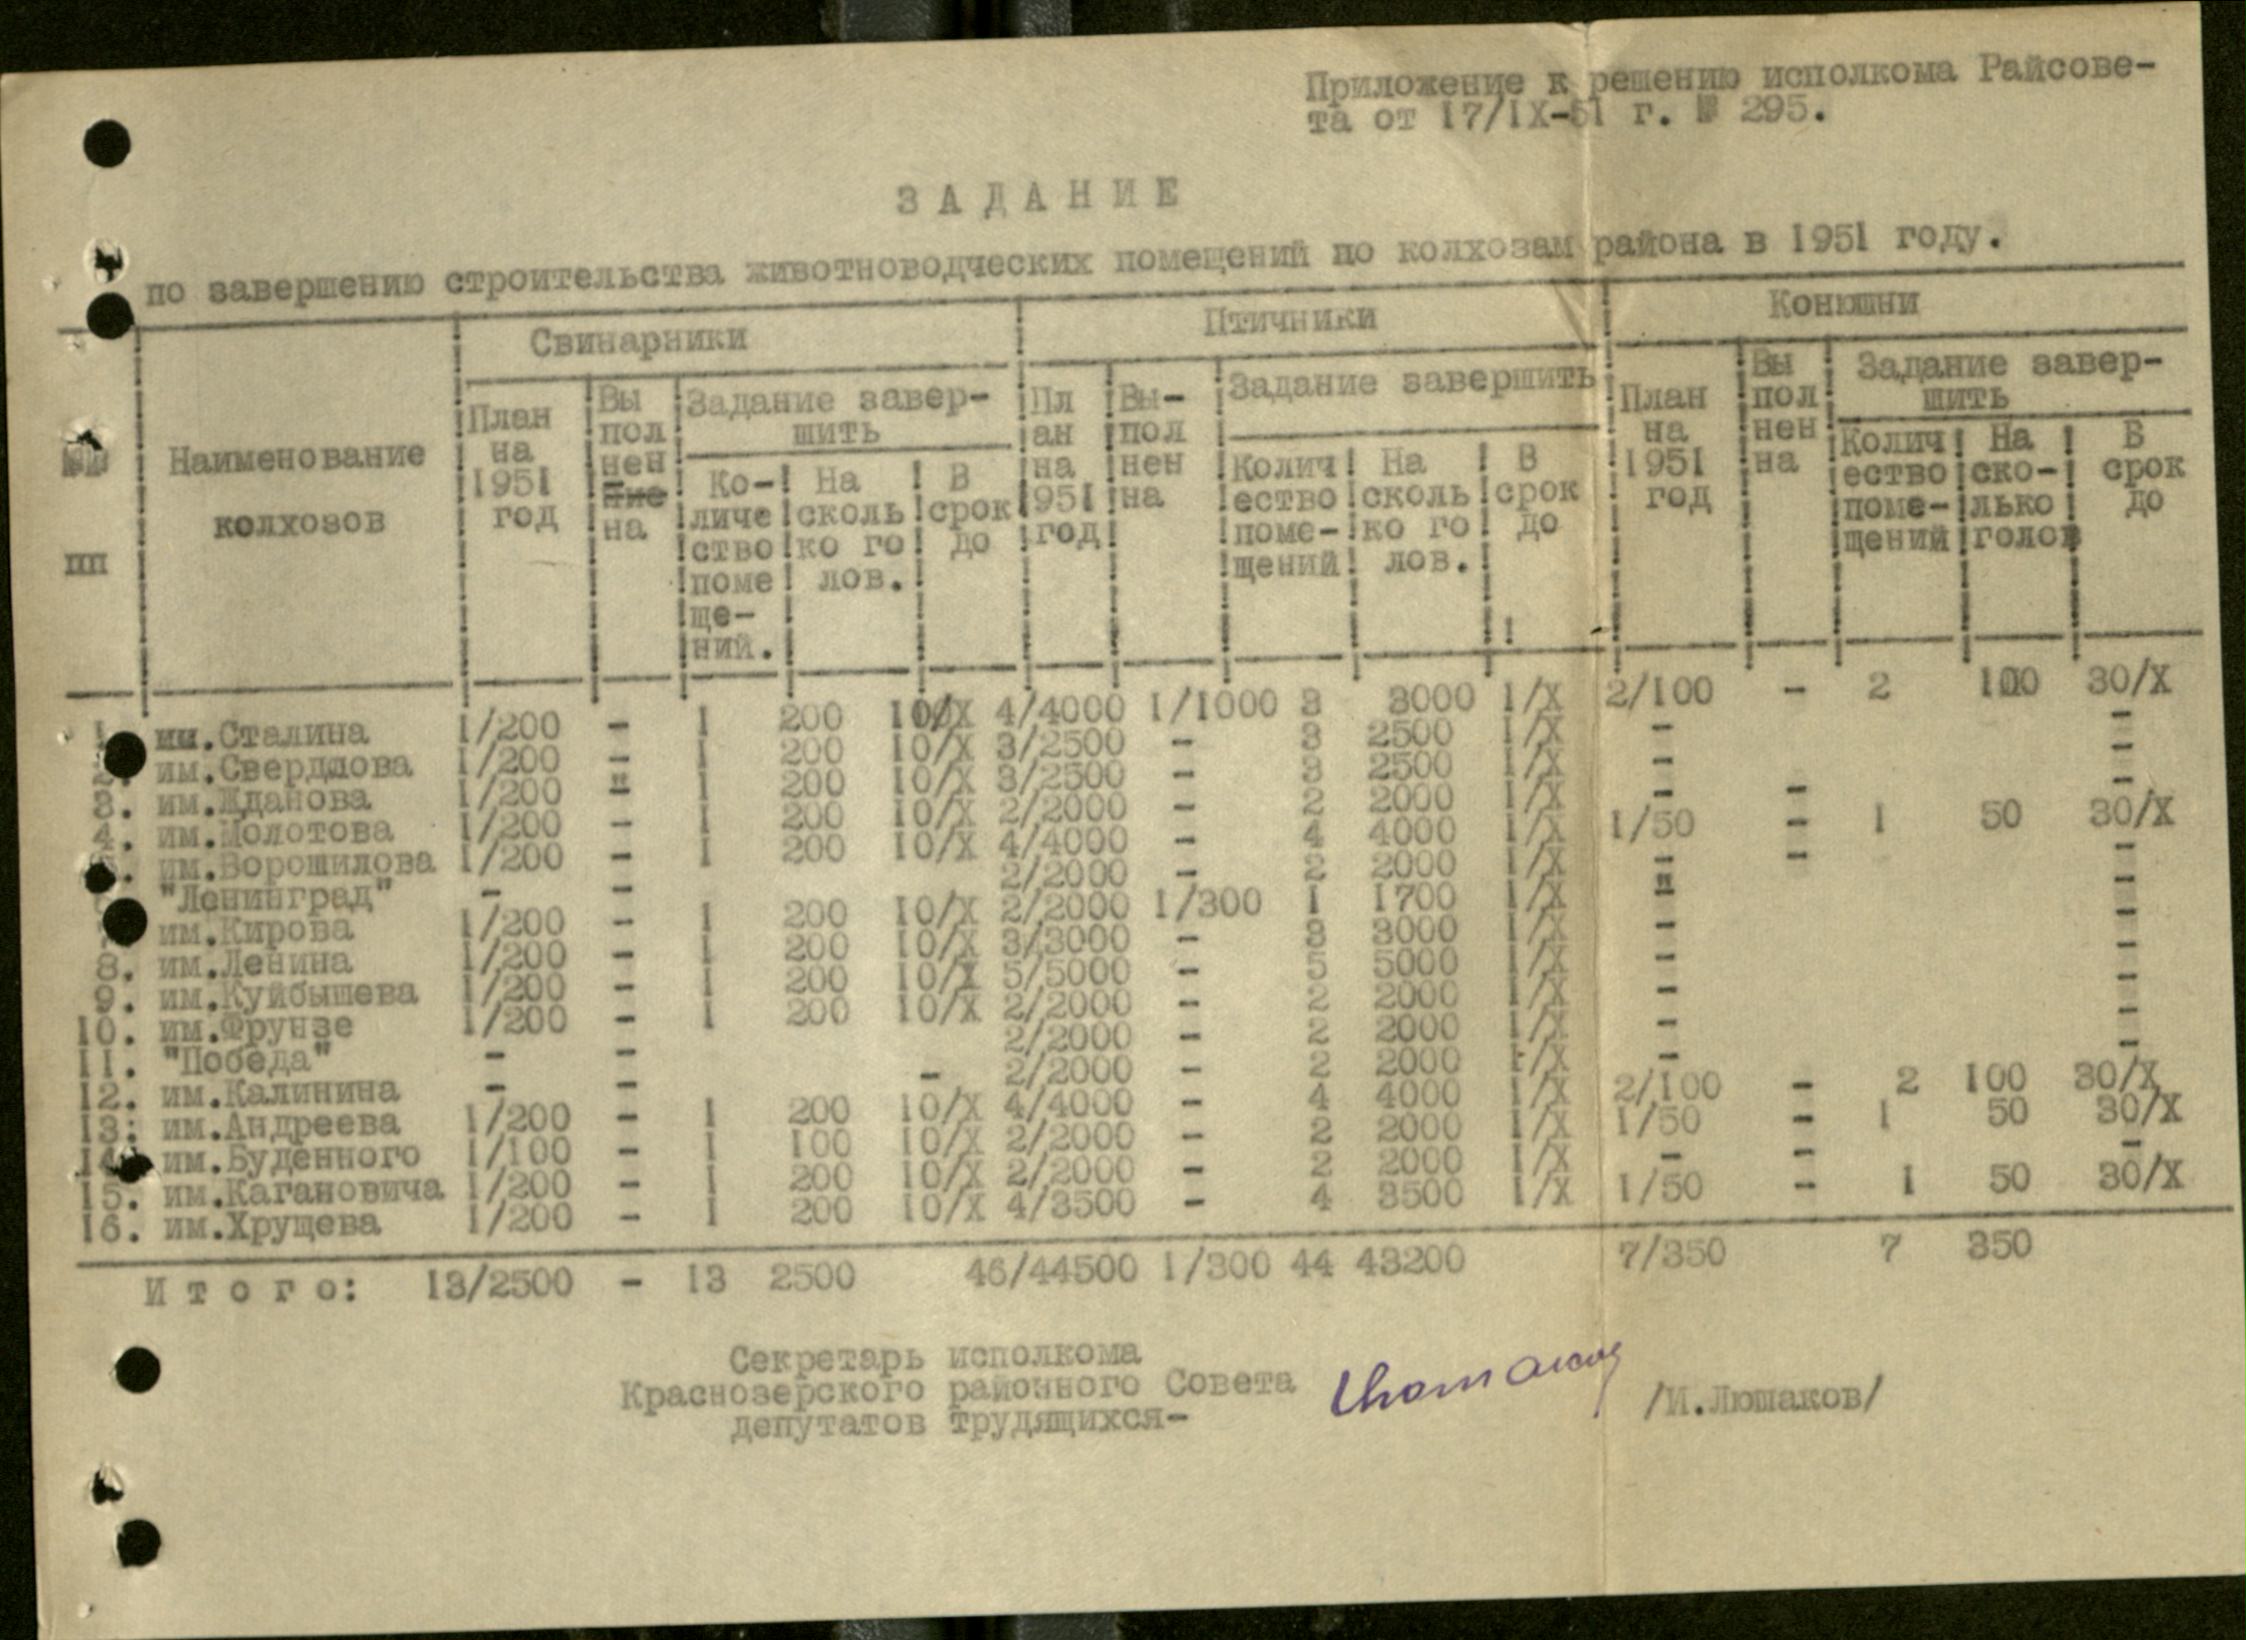 Приложение к решению исполкома Райсове-
та от 17/IX-51 г. № 295.
З А Д А Н И Е
по завершению строительства животноводческих помещений по колхозам района в 1951 году.
№№ пп
Наименование колхозов
Свинарники
Птичники
Конюшни
План на 1951 год
Вы пол нен ние на
Задание завер- шить
Ко- личе ство поме ще- ний.
На сколь ко го лов.
В срок до
Пл ан на 1951 год
Вы- пол нен на
Задание завершить
Колич ество поме- щений
На сколь ко го лов.
В срок до
План на 1951 год
Вы пол нен на
Задание завер- шить
Колич ество поме- щений
На ско- лько голов
В срок до
им.Сталина 1/200 - 1 200 10/X 4/4000 1/1000 3 3000 1/X 2/100 - 2 100 30/X
им.Свердлова 1/200 - 1 200 10/X 3/2500 - 3 2500 1/X - -
3. им.Жданова 1/200 - 1 200 10/X 3/2500 - 3 2500 1/X - -
4. им.Молотова 1/200 - 1 200 10/X 2/2000 - 2 2000 1/X - - -
им.Ворошилова 1/200 - 1 200 10/X 4/4000 - 4 4000 1/X 1/50 - 1 50 30/X
"Ленинград" - - 2/2000 - 2 2000 1/X - - -
им.Кирова 1/200 - 1 200 10/X 2/2000 1/300 1 1700 1/X - -
8. им.Ленина 1/200 - 1 200 10/X 3/3000 - 3 3000 1/X - -
9. им.Куйбышева 1/200 - 1 200 10/X 5/5000 - 5 5000 1/X - -
10. им.Фрунзе 1/200 - 1 200 10/X 2/2000 - 2 2000 1/X - -
11. "Победа" - - 2/2000 - 2 2000 1/X - -
12. им.Калинина - - - 2/2000 - 2 2000 1/X - -
13. им.Андреева 1/200 - 1 200 10/X 4/4000 - 4 4000 1/X 2/100 - 2 100 30/X
14. им.Буденного 1/100 - 1 100 10/X 2/2000 - 2 2000 1/X 1/50 - 1 50 30/X
15. им.Кагановича 1/200 - 1 200 10/X 2/2000 - 2 2000 1/X - - -
16. им.Хрущева 1/200 - 1 200 10/X 4/3500 - 4 3500 1/X 1/50 - 1 50 30/X
И т о г о: 13/2500 - 13 2500 46/44500 1/300 44 43200 7/350 7 350
Секретарь исполкома
Краснозерского районного Совета
депутатов трудящихся- /И.Люшаков/